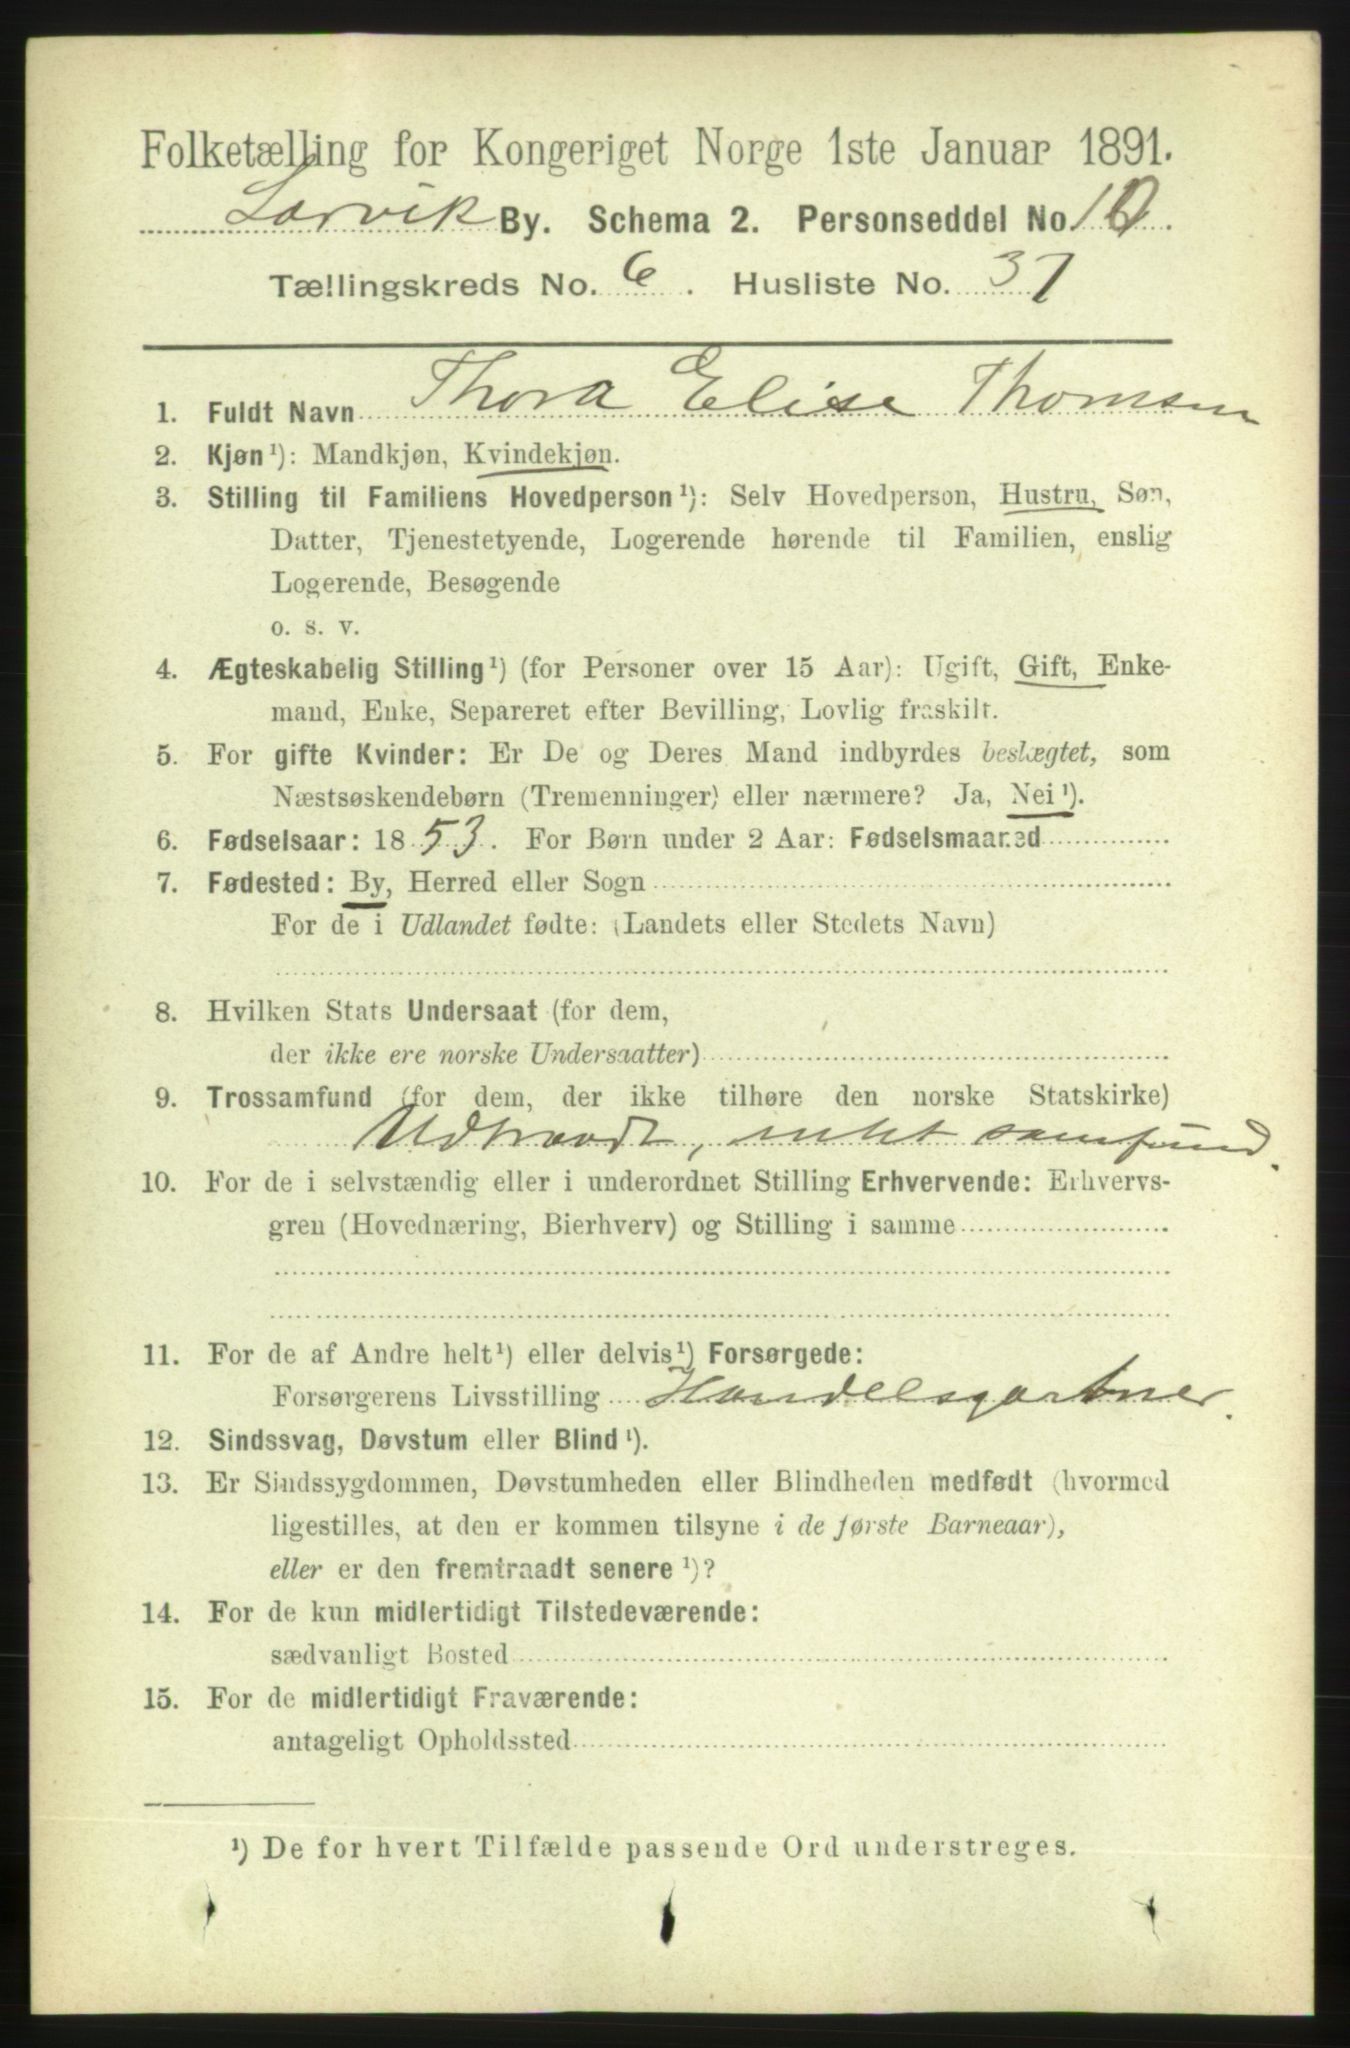 Folketælling for Kongeriget Norge 1ste Januar 1891.
Larvik By. Schema 2. Personseddel No 10.
Tællingskreds No. 6. Husliste No. 37
1. Fuldt Navn Thora Elise Thomsen
2. Kjøn¹): Mandkjøn, Kvindekjøn.
3. Stilling til Familiens Hovedperson¹): Selv Hovedperson, Hustru, Søn,
Datter, Tjenestetyende, Logerende hørende til Familien, enslig
Logerende, Besøgende
o. s. v.
4. Ægteskabelig Stilling¹) (for Personer over 15 Aar): Ugift, Gift, Enke-
mand, Enke, Separeret efter Bevilling, Lovlig fraskilt.
5. For gifte Kvinder: Er De og Deres Mand indbyrdes beslægtet, som
Næstsøskendebørn (Tremenninger) eller nærmere? Ja, Nei¹).
6. Fødselsaar: 1853. For Børn under 2 Aar: Fødselsmaaned
7. Fødested: By, Herred eller Sogn
For de i Udlandet fødte: (Landets eller Stedets Navn)
8. Hvilken Stats Undersaat (for dem,
der ikke ere norske Undersaatter)
9. Trossamfund (for dem, der ikke tilhøre den norske Statskirke)
Udtraadt, intet samfund.
10. For de i selvstændig eller i underordnet Stilling Erhvervende: Erhvervs-
gren (Hovednæring, Bierhverv) og Stilling i samme
11. For de af Andre helt¹) eller delvis¹) Forsørgede:
Forsørgerens Livsstilling Handelsgartner.
12. Sindssvag, Døvstum eller Blind¹).
13. Er Sindssygdommen, Døvstumheden eller Blindheden medfødt (hvormed
ligestilles, at den er kommen tilsyne i de første Barneaar),
eller er den fremtraadt senere¹)?
14. For de kun midlertidigt Tilstedeværende:
sædvanligt Bosted
15. For de midlertidigt Fraværende:
antageligt Opholdssted
¹) De for hvert Tilfælde passende Ord understreges.